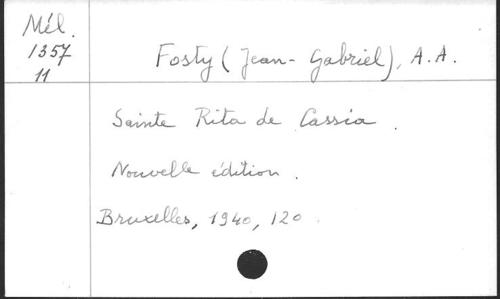 Mél.
1357
11
Fosty (Jean-Gabriel), A.A.
Sainte Rita de Cassia.
Nouvelle édition.
Bruxelles, 1940, 120.